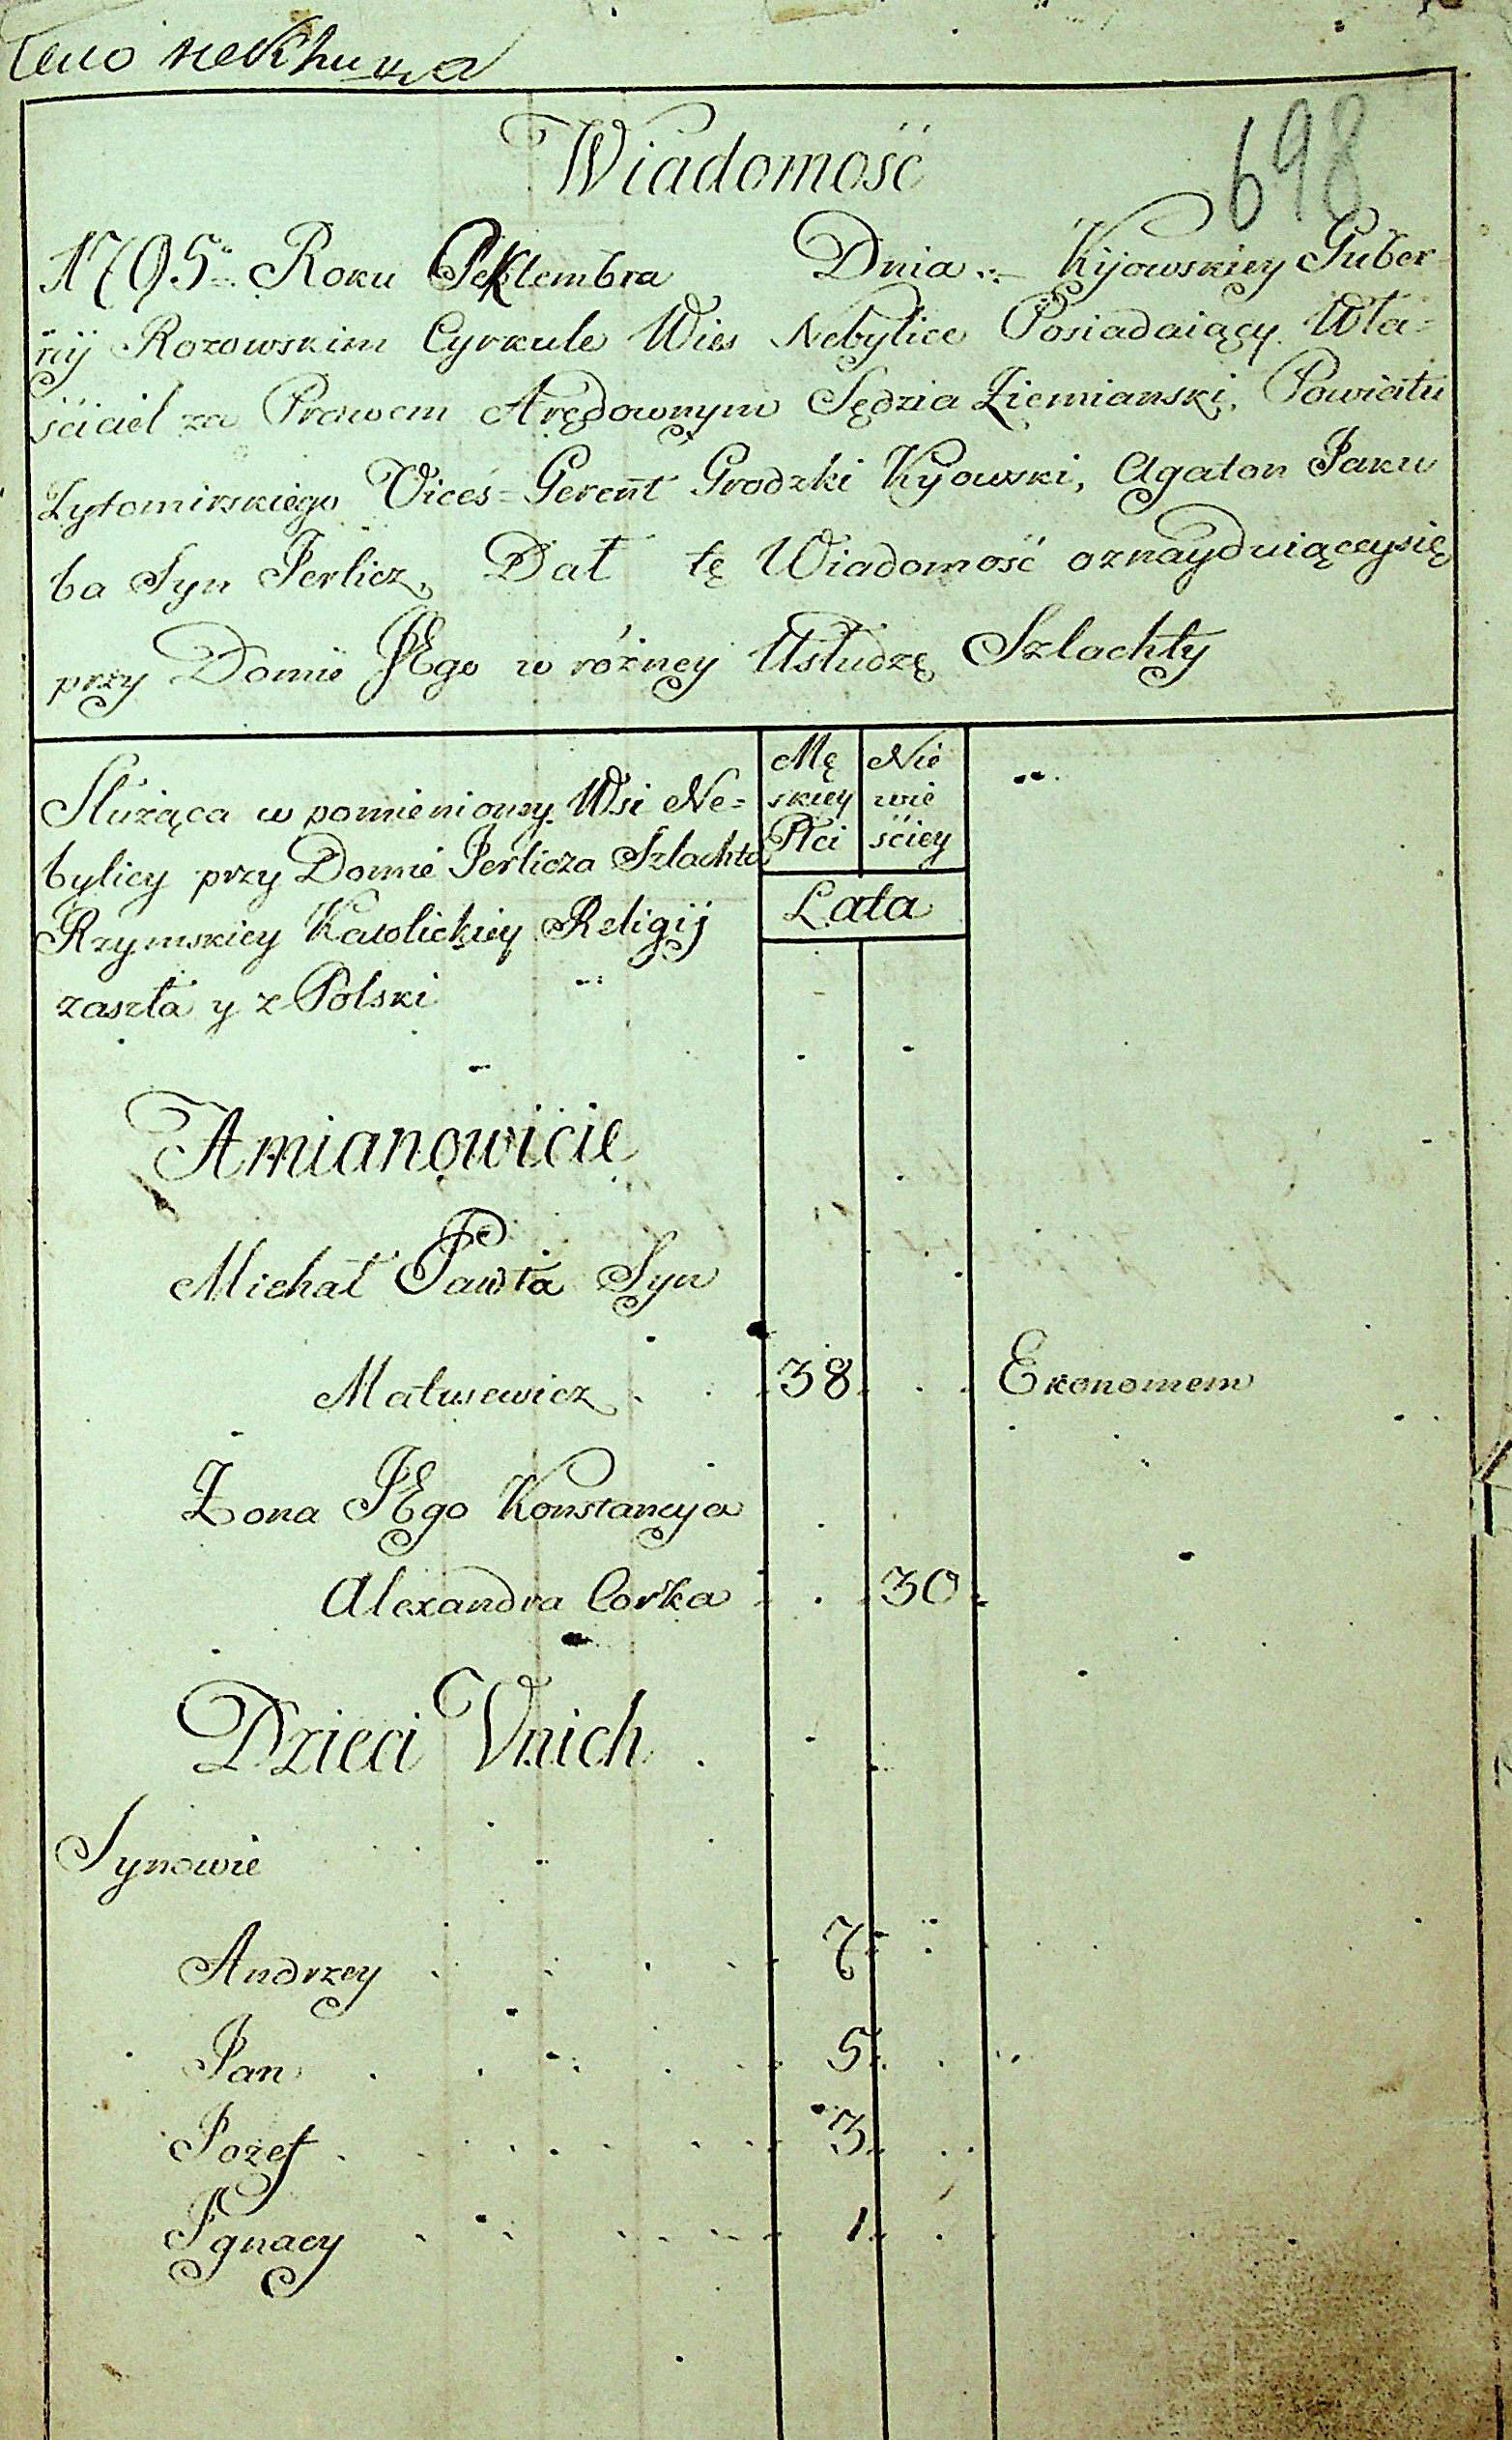 698
Wiadomość
1795 Roku Septembra Dnia Kijowskiey Guber-
nij Rozowskim Cyrkule Wies Nebylice Posiadaiący Wła=
ściciel za Prawem Arędownym Sędzia Ziemianski, Powiatu
Zytomirskiego Vices=Gerent Grodzki Kyowski, Agaton Jaku
ba Syn Jerlicz, Dał tę Wiadomość oznayduiąceysię
przy Domie JEgo w różney Usłudzę Szlachty
Służąca w pomienioney Wsi Ne=
bylicy przy Domie Jerlicza Szlachta
Rzymskiey Katolickiey Religij
zaszła y z Polski
Mę
skiey
Płci
Nie
wie
ściey
Lata
Amianowicie
Michał Pawła Syn
Matusewicz 38 Ekonomem
Zona JEgo Konstancyja
Alexandra Corka 30
Dzieci Vnich
Synowie
Andrzey 7
Jan 5
Jozef 3
Jgnacy 1